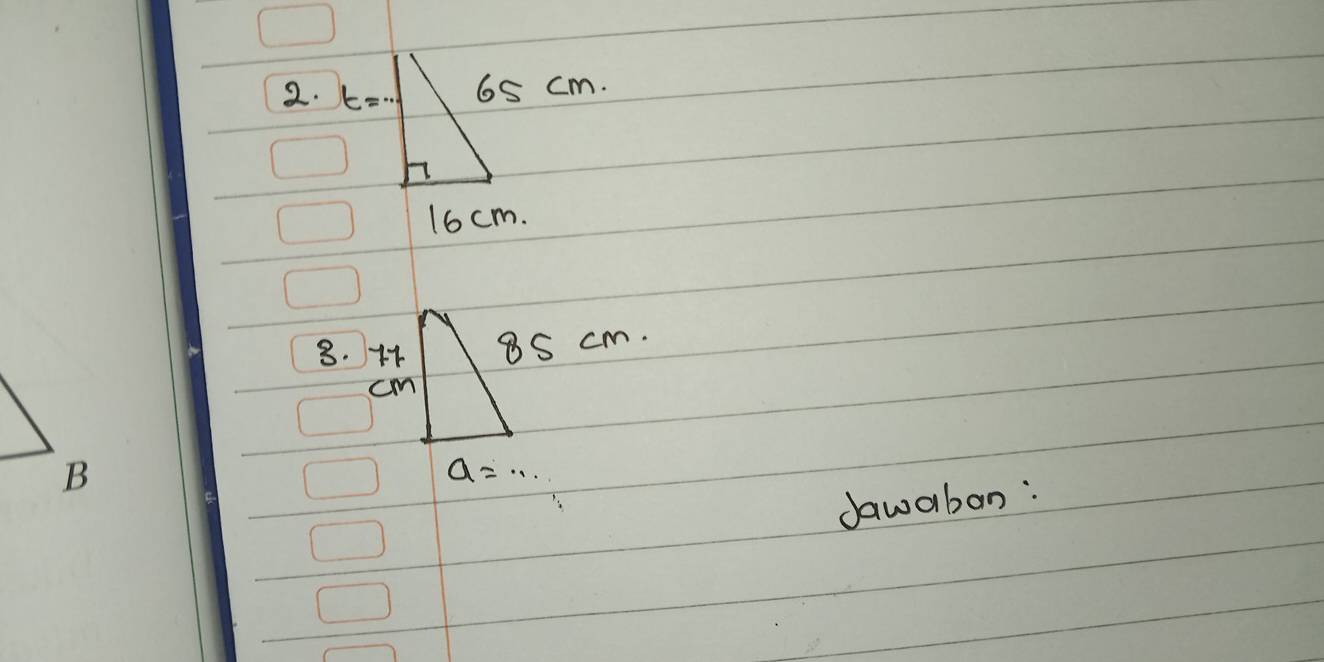 2. t=... 65 cm.
16 cm.
3. 77 cm 85 cm.
a = ...
B
Jawaban :